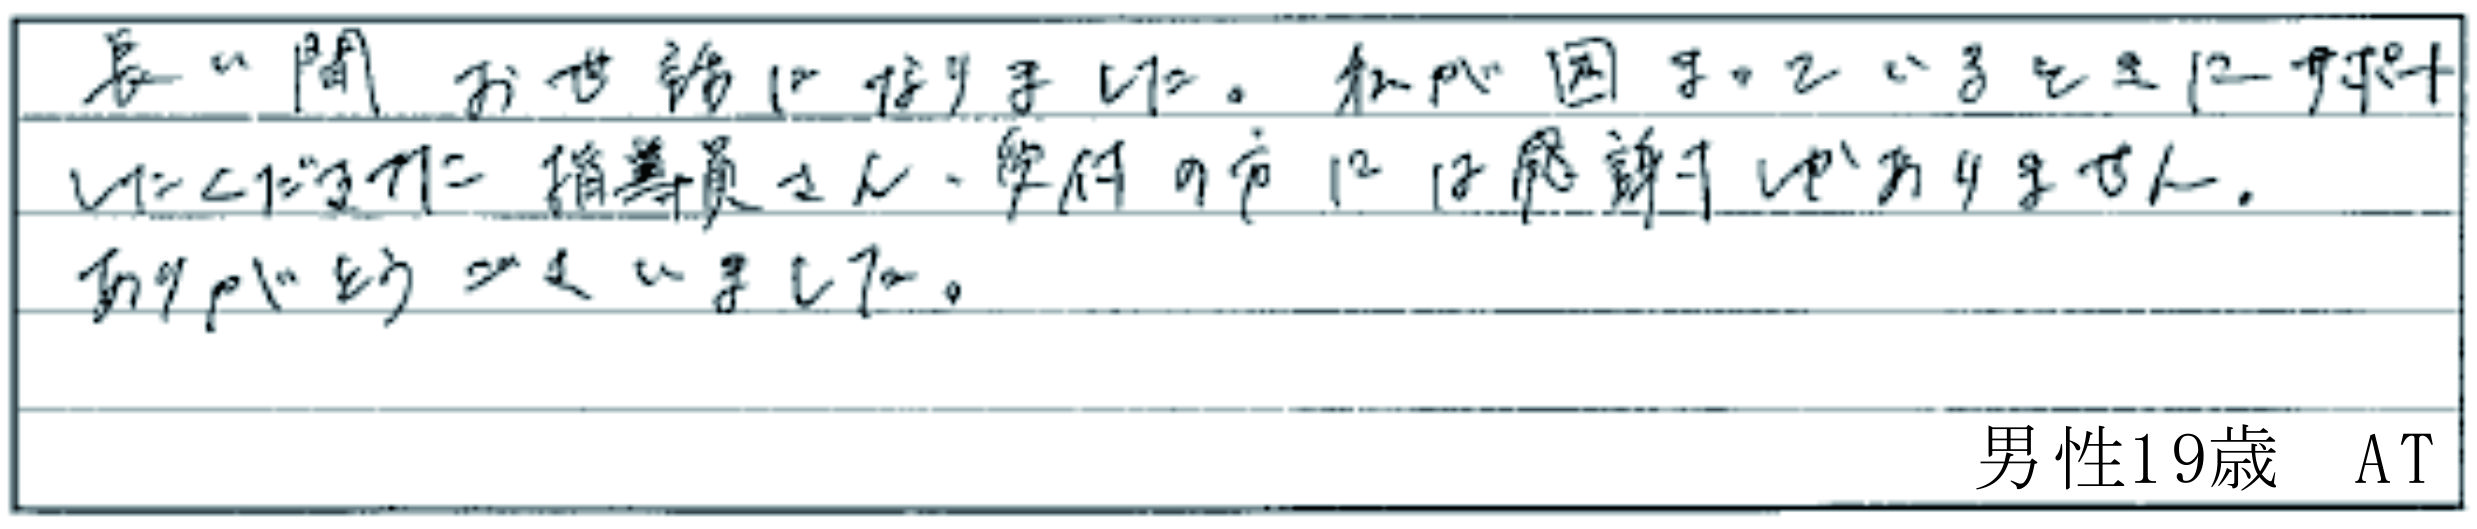 長い間お世話になりました。私が困まっているときにサポート
いただきました指導員さん、受付の方には感謝しかありません。
ありがとうございました。
男性19歳 AT